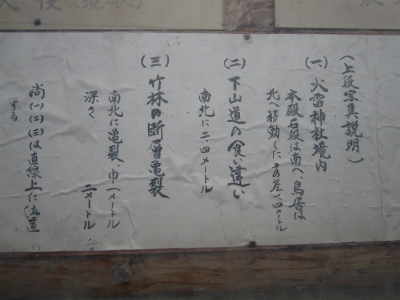 (上段写真説明)
(一)火雷神社境内
本殿石段は南へ、鳥居は
北へ移動したその差一、四メートル
(二)下山道の食い違い
南北に二、四メートル
(三)竹林の断層亀裂
南北に亀裂、巾一メートル
深さ 二メートル
尚(一)(二)(三)は直線上に位置
する